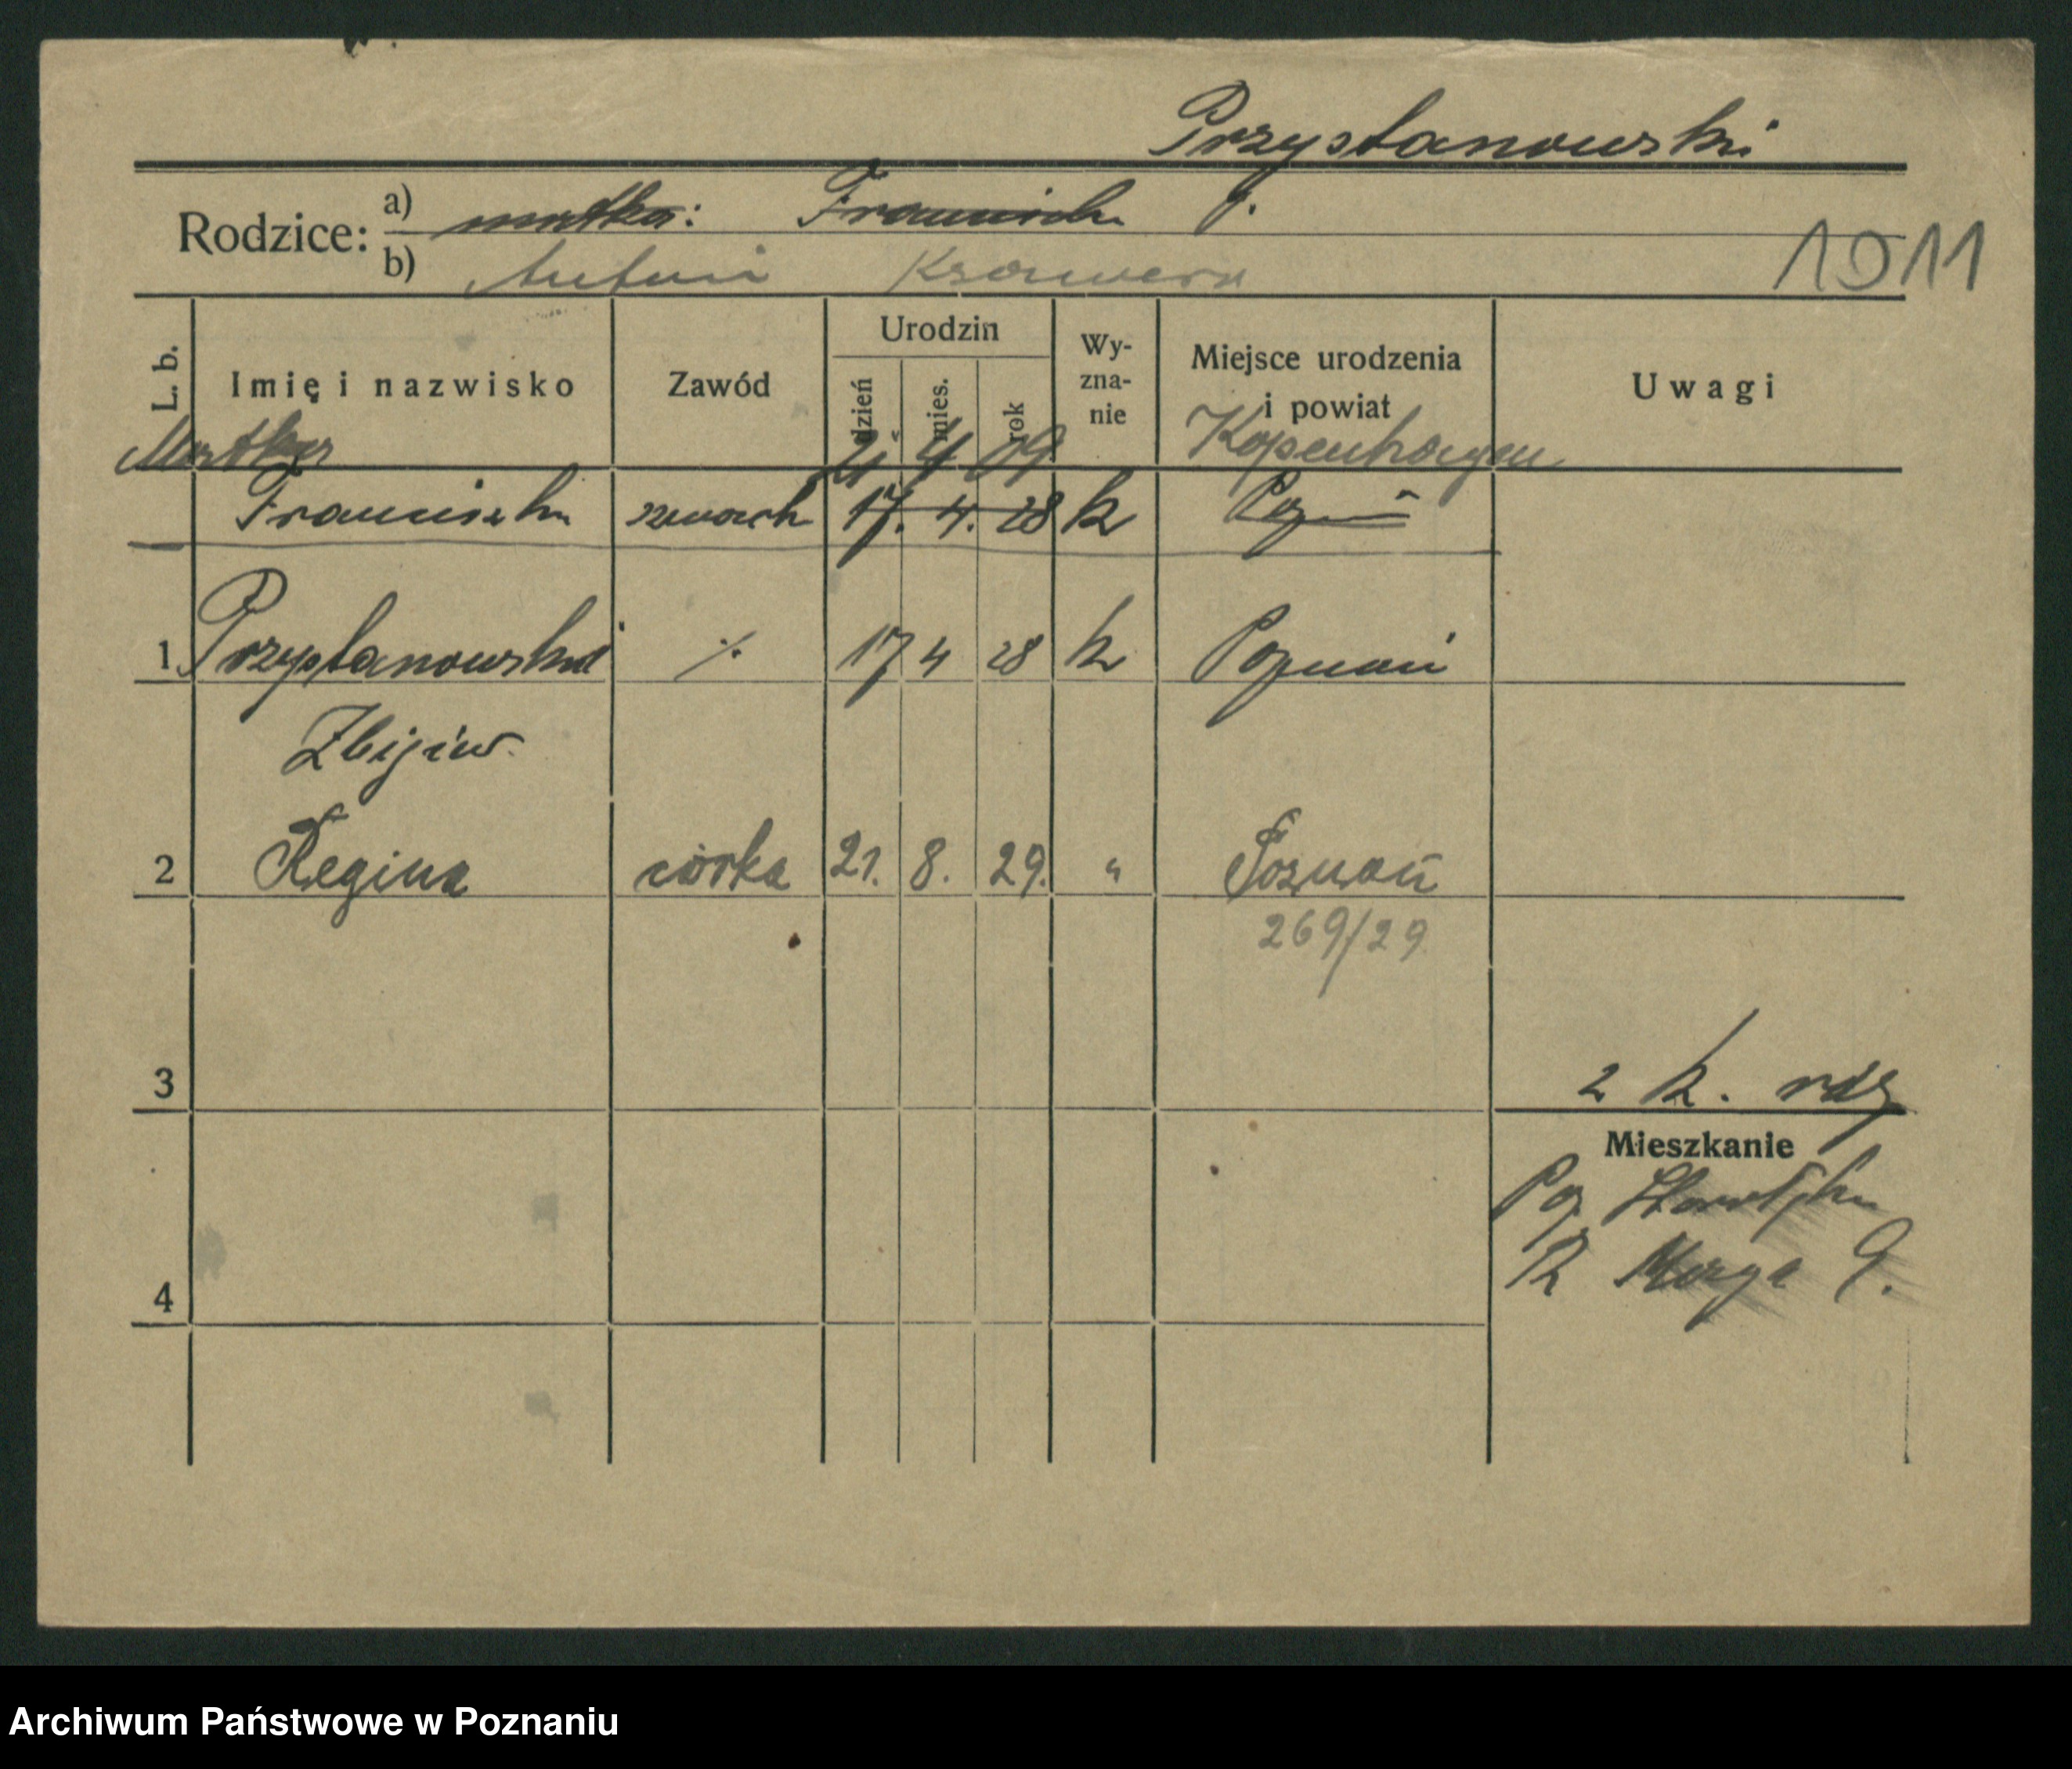 Przystanowski
Rodzice:
a) matka: Franciszka P.
b) Antoni Ksawera
1911
L. b.
Imię i nazwisko
Zawód
Urodzin
dzień
mies.
rok
Wy-
zna-
nie
Miejsce urodzenia
i powiat
Uwagi
Matka 4 09 Kopenhagen
Franciszka 17. 4. 28 k
1 Przystanowski ·/. 17 4 28 k Poznań
Zbigiew.
2 Regina córka 21. 8. 29. " Poznań
269/29
3
2 k.
Mieszkanie
Poz
4
9.
Archiwum Państwowe w Poznaniu